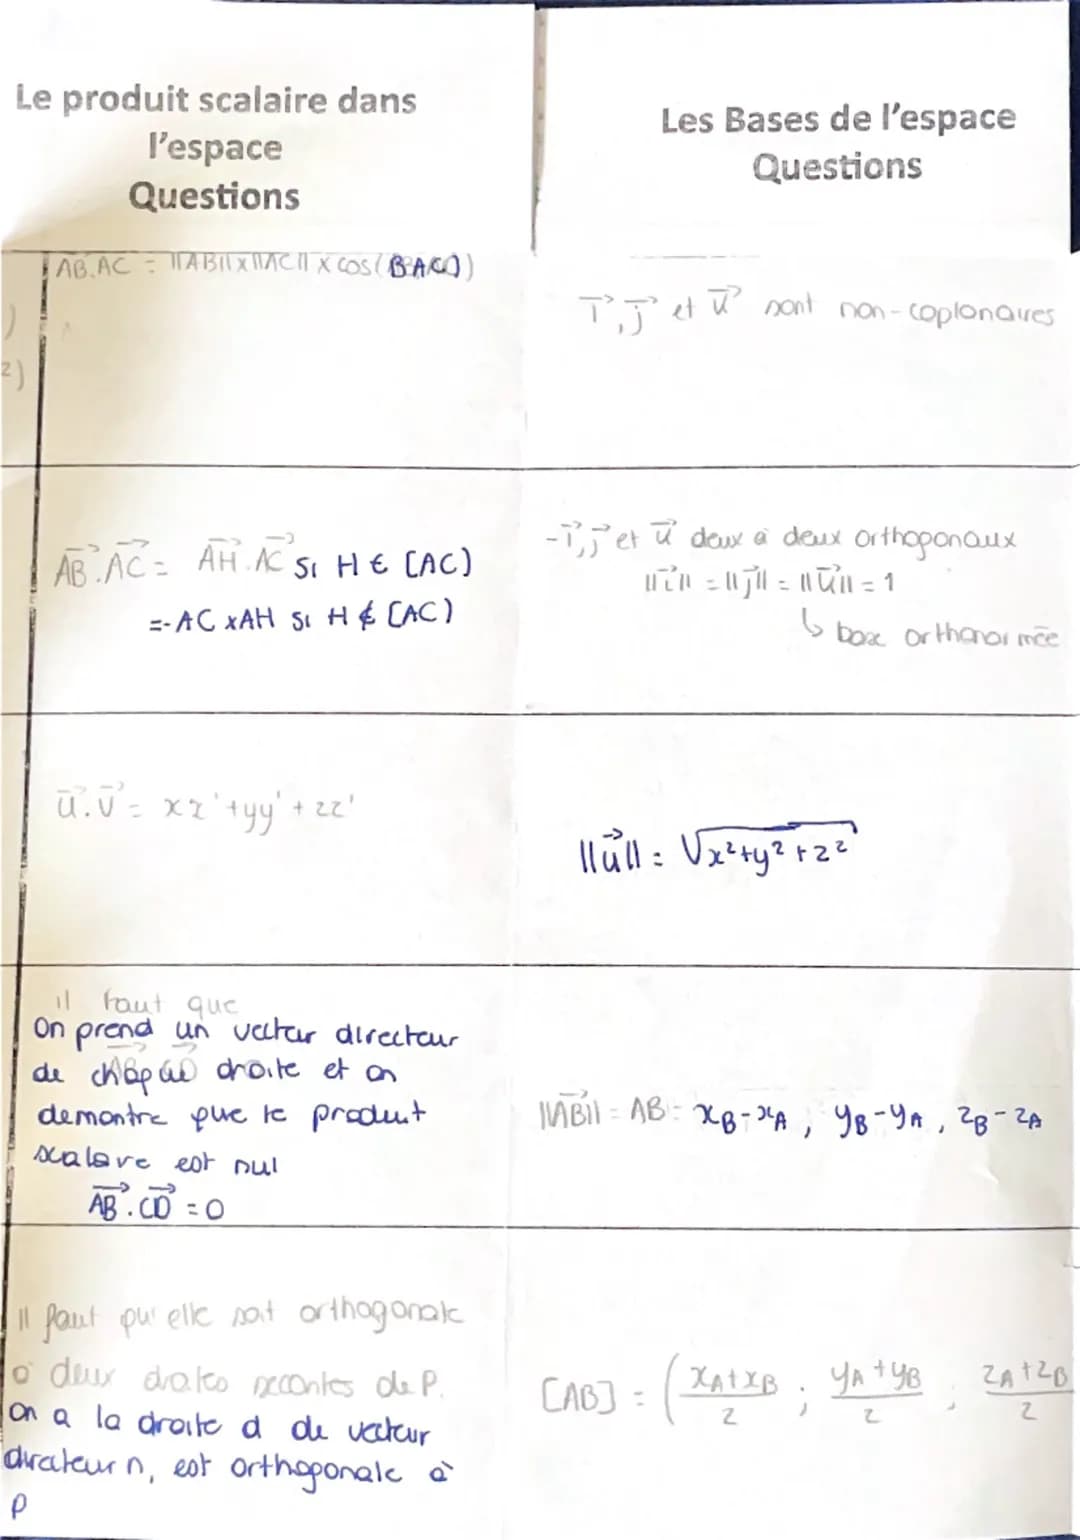 Le produit scalaire dans
l'espace
Questions
AB.AC = ||AB||x||AC|| x cos(BAC)
2)
AB.AC = AH.AC si H ∈ [AC)
=-AC xAH si H ∉ [AC)
u.v = xx'+yy'+zz'
il faut que
On prend un vecteur directeur
de chaque droite et on
demontre que le produit
scalaire est nul
AB.CD = 0
Il faut qu'elle soit orthogonale
à deux droites secantes de P.
on a la droite d de vecteur
directeur n, est orthogonale à
P
Les Bases de l'espace
Questions
i, j et u sont non-coplanaires
-i, j et u deux à deux orthogonaux
||i|| = ||j|| = ||u|| = 1
↳ base orthonormée
||u|| = √x²+y²+z²
||AB|| = AB = xB-xA, yB-yA, zB-zA
[AB] = (xA+xB/2 ; yA+yB/2 ; zA+zB/2